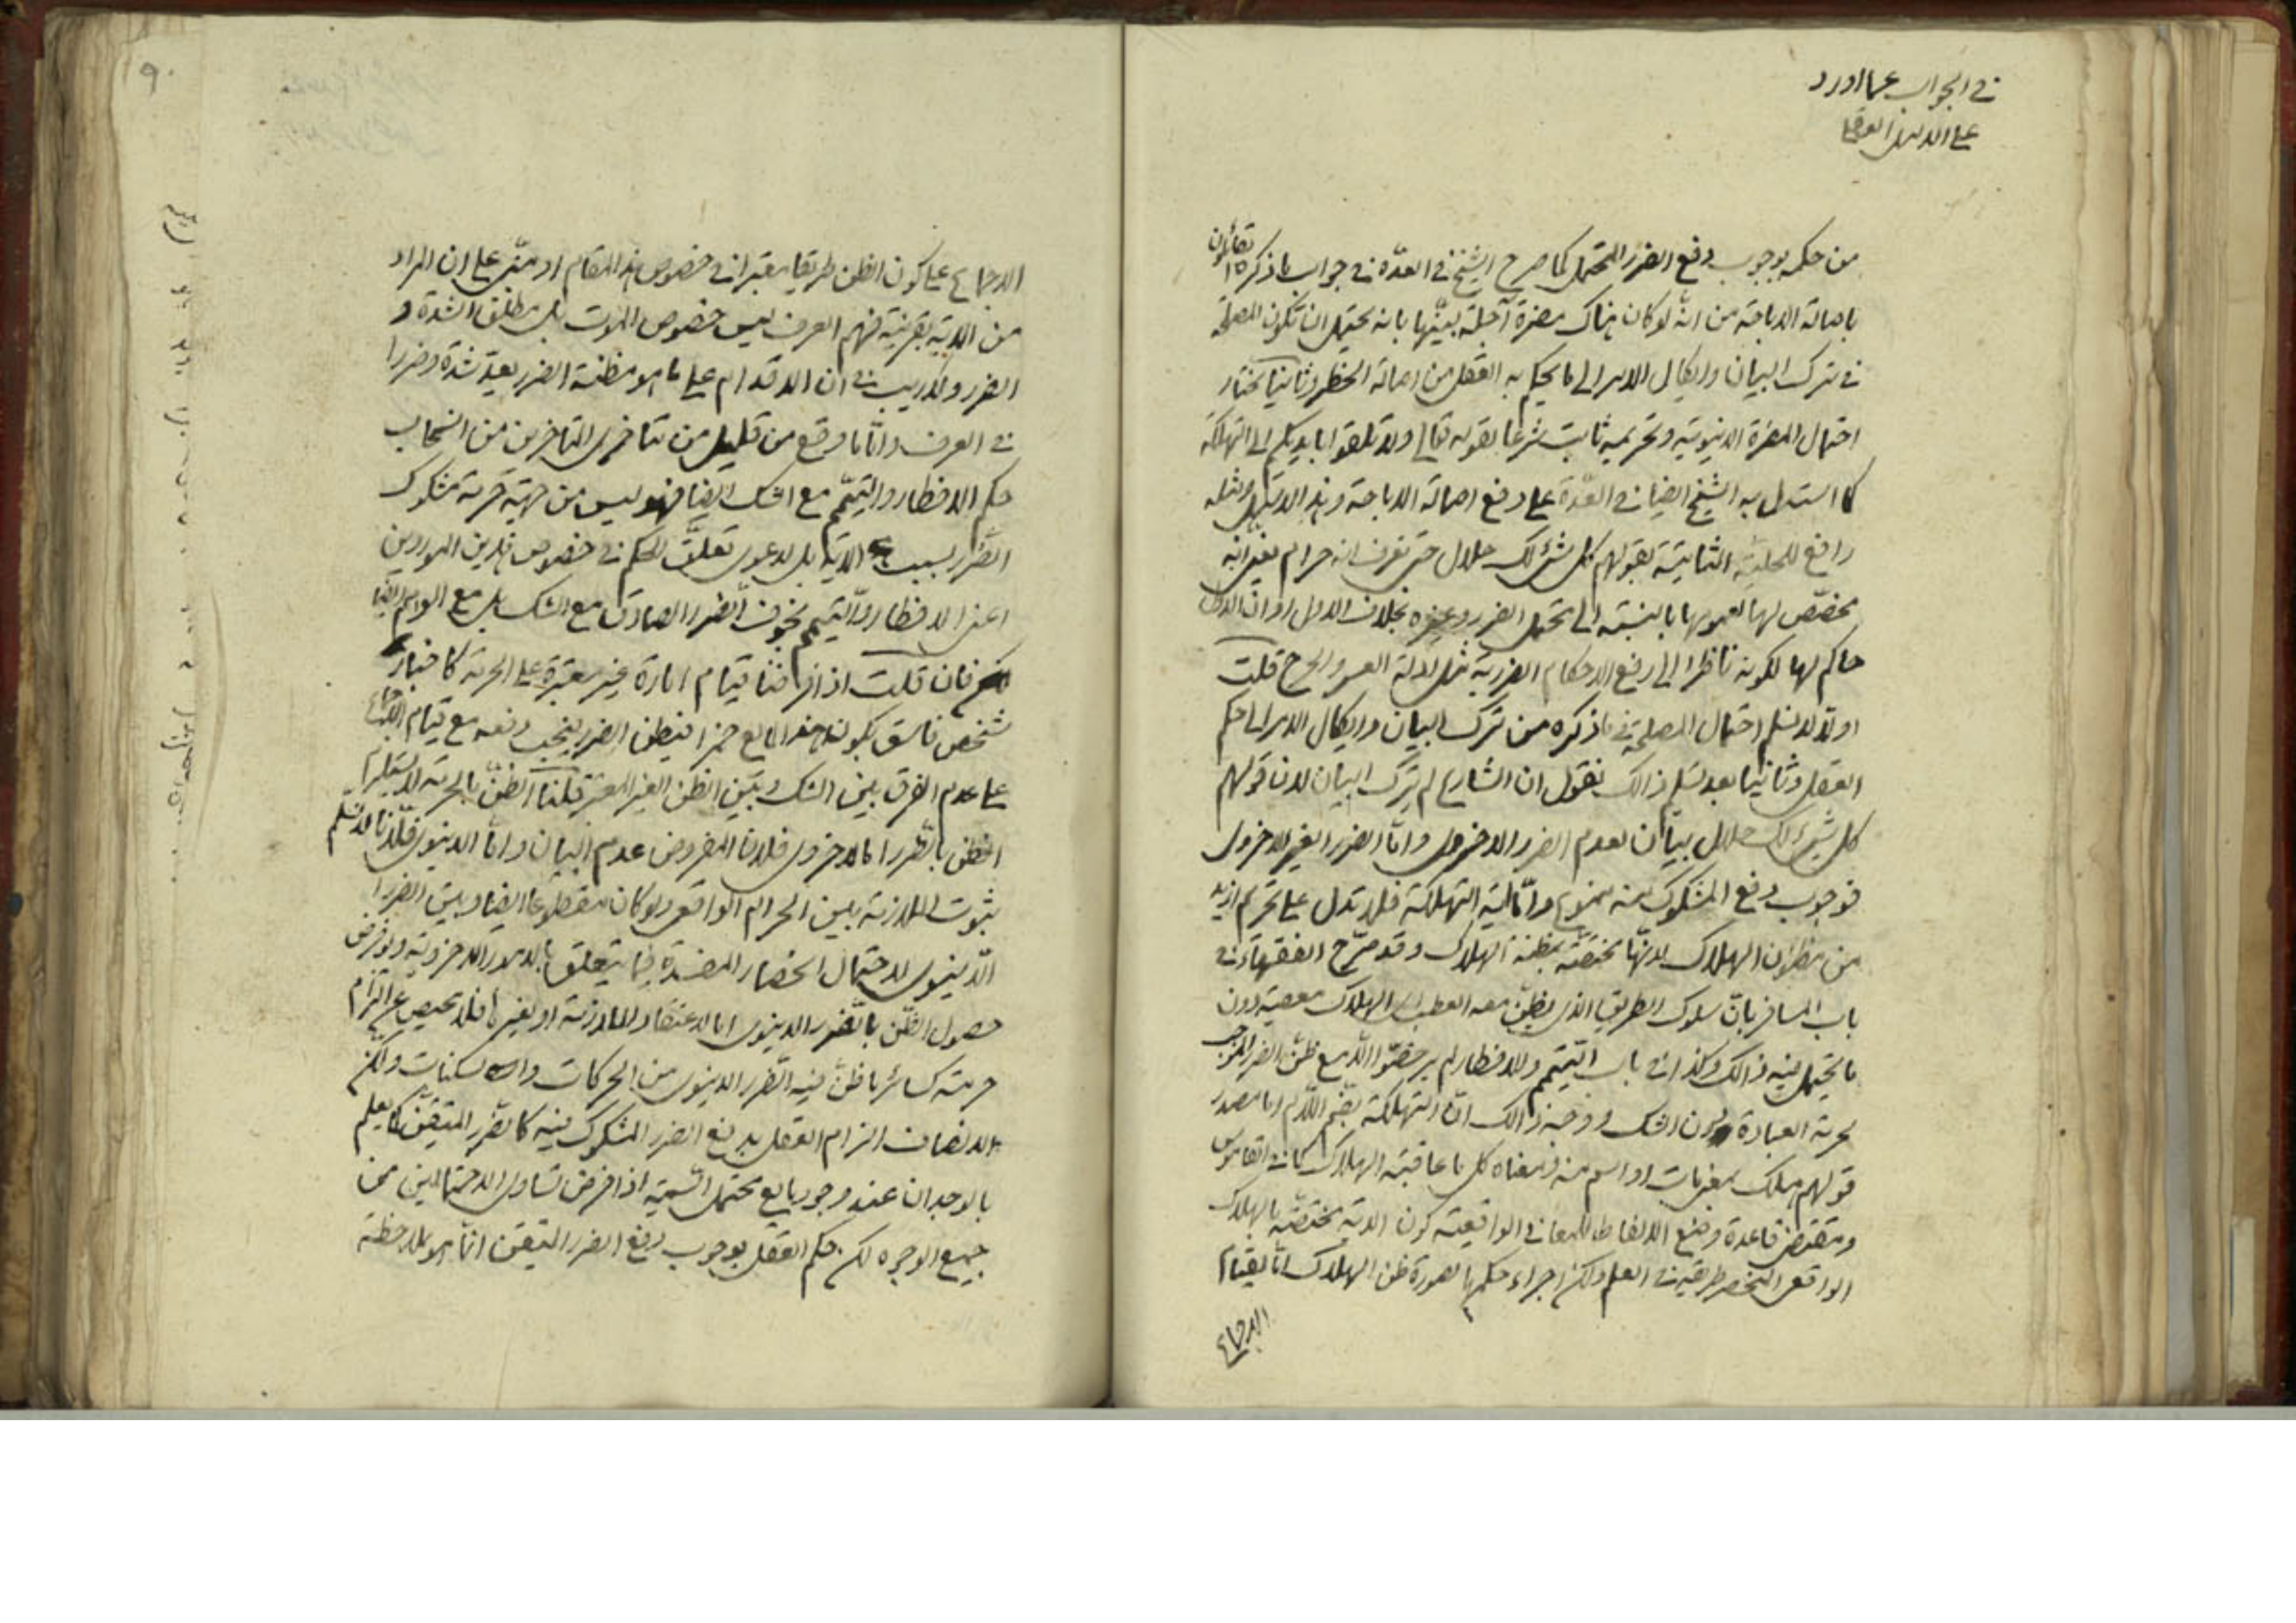 في الجواب عما اورد
على الدليل العقلي
من حكمه بوجوب دفع الضرر المحتمل كما صرح الشيخ في العدّة في جواب ما ذكره القائلون
باصالة الاباحة من انّه لو كان هناك مضرة آجلة لبيّنها بانه يحتمل ان تكون المصلحة
في ترك البيان وايكال الامر الى ما يحكم به العقل من اصالة الحظر وثانيا نختار
احتمال المضرة الدنيوية وتحريمه ثابت شرعا بقوله تعالى ولا تلقوا بايديكم الى التهلكة
كما استدل به الشيخ ايضا في العدّة على دفع اصالة الاباحة وهذا الدليل ومثله
رافع للحلية الثابتة بقولهم كل شئ لك حلال حتى تعرف انه حرام بمعنى انه
مخصّص لها لعمومها بالنسبة الى محتمل الضرر وغيره بخلاف الاول او ان الاول
حاكم لها لكونه ناظرا الى رفع الاحكام الضررية مثل ادلة العسر والحرج قلت
اولا لا نسلم احتمال المصلحة فيما ذكره من ترك البيان وايكال الامر الى حكم
العقل وثانيا بعد تسليم ذالك نقول ان الشارع لم يترك البيان لان قولهم
كل شئ لك حلال بيان لعدم الضرر الاخروى وامّا الضرر الغير الاخروى
فوجوب دفع المشكوك منه ممنوع وامّا آية التهلكة فلا تدل على تحريم ازيد
من مظنون الهلاك لانّها مختصّة بمظنة الهلاك وقد صرّح الفقهاء في
باب المسافر بانّ سلوك الطريق الذى يظنّ معه العطب اى الهلاك معصية دون
ما يحتمل فيه ذالك وكذا في باب التيمّم والافطار لم يرخصّوا الّا مع ظنّ الضرر الموجب
لحرمة العبادة دون الشك ووجه ذالك انّ التهلكة بضم اللّام اما مصدر
قولهم هلك بمعنى مات او اسم منه ومعناه كل ما عاقبته الهلاك كما في القاموس
ومقتضى قاعدة وضع الالفاظ للمعاني الواقعية كون الاية مختصّة بالهلاك
الواقعى المنحصر طريقه في العلم ولكن اجراء حكمها بصورة ظن الهلاك امّا لقيام
الاجماع
الاجماع على كون الظن طريقا معتبرا في خصوص هذا المقام او مبنى على ان المراد
من الاية بقرينة فهم العرف ليس خصوص الموت بل مطلق الشدة و
الضرر ولا ريب في ان الاقدام على ما هو مظنة الضرر يعدّ شدة وضررا
في العرف وامّا ما وقع من قليل من متاخرى المتاخرين من انسحاب
حكم الافطار والتيمّم مع الشك ايضا فهو ليس من جهة حرمة مشكوك
الضرر بسبب الاية بل لدعوى تعلّق الحكم في خصوص هذين الموردين
اعنى الافطار والتيمم بخوف الضرر الصادق مع الشك بل مع الوهم ايضا
فان قلت اذا فرضنا قيام امارة غير معتبرة على الحرمة كاخبار
شخص فاسق بكون هذا المايع خمرا فيظن الضرر فيجب دفعه مع قيام الاجماع
على عدم الفرق بين الشك وبين الظن الغير المعتبر قلنا الظنّ بالحرمة لا يستلزم
الظن بالضرر اما الاخروى فلان المفروض عدم البيان وامّا الدنيوى فلانا لا نسلم
ثبوت الملازمة بين الحرام الواقعى ولو كان مقطوعا ايضا وبين الضرر
الدّنيوى لاحتمال انحصار المفسدة فيما يتعلق بالامور الاخروية ولو فرض
حصول الظّن بالضرر الدنيوى اما لاعتقاد الملازمة او لغيرها فلا محيص عن التزام
حرمته كسائر ما ظنّ فيه الضّرر الدنيوى من الحركات والسكنات ولكن
الانصاف الزام العقل بدفع الضرر المشكوك فيه كالضّرر المتيقّن كما يعلم
بالوجدان عند وجود مايع محتمل السّمية اذا فرض تساوى الاحتمالين من
جميع الوجوه لكن حكم العقل بوجوب دفع الضرر المتيقن انّما هو بملاحظة